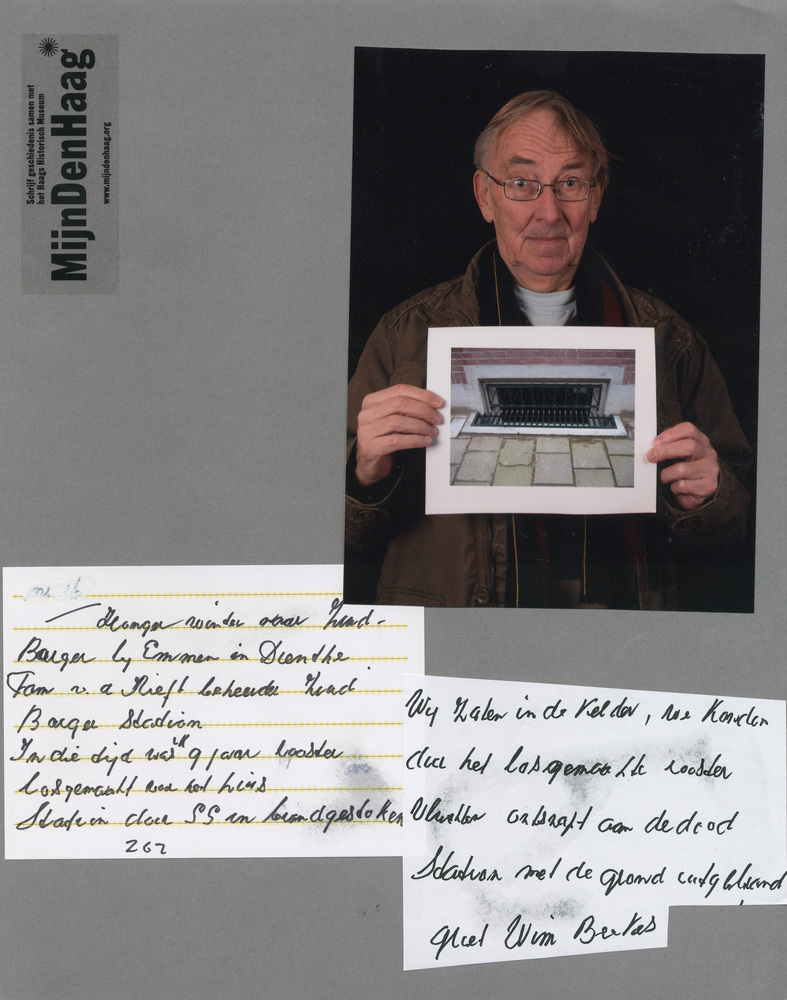 Schrijf geschiedenis samen met
het Haags Historisch Museum
MijnDenHaag
www.mijndenhaag.org
Honger winter naar Zuid-
Barger by Emmen in Drenthe
Fam v. d beheerde Zuid
Barger Station
In die tijd was ik 9 jaar rooster
losgemaakt voor het huis
Station door SS in brandgestoken
262
Wy zaten in de kelder, we konden
door het losgemaakte rooster
vluchten ontsnapt aan de dood
Station met de grond
groet Wim